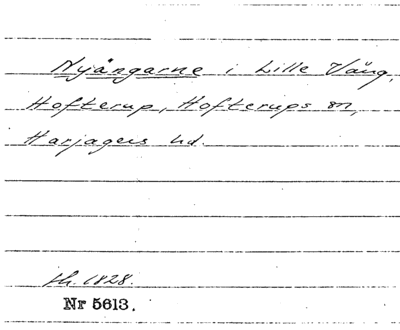 Nyängarne i Lille Väng,
Hofterup, Hofterups sn,
Harjagers hd.
sh. 1828.
Nr 5613.